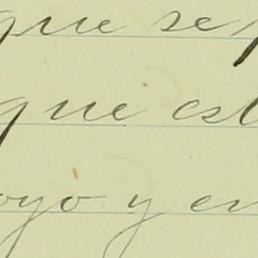 que se
que est
oyo y en